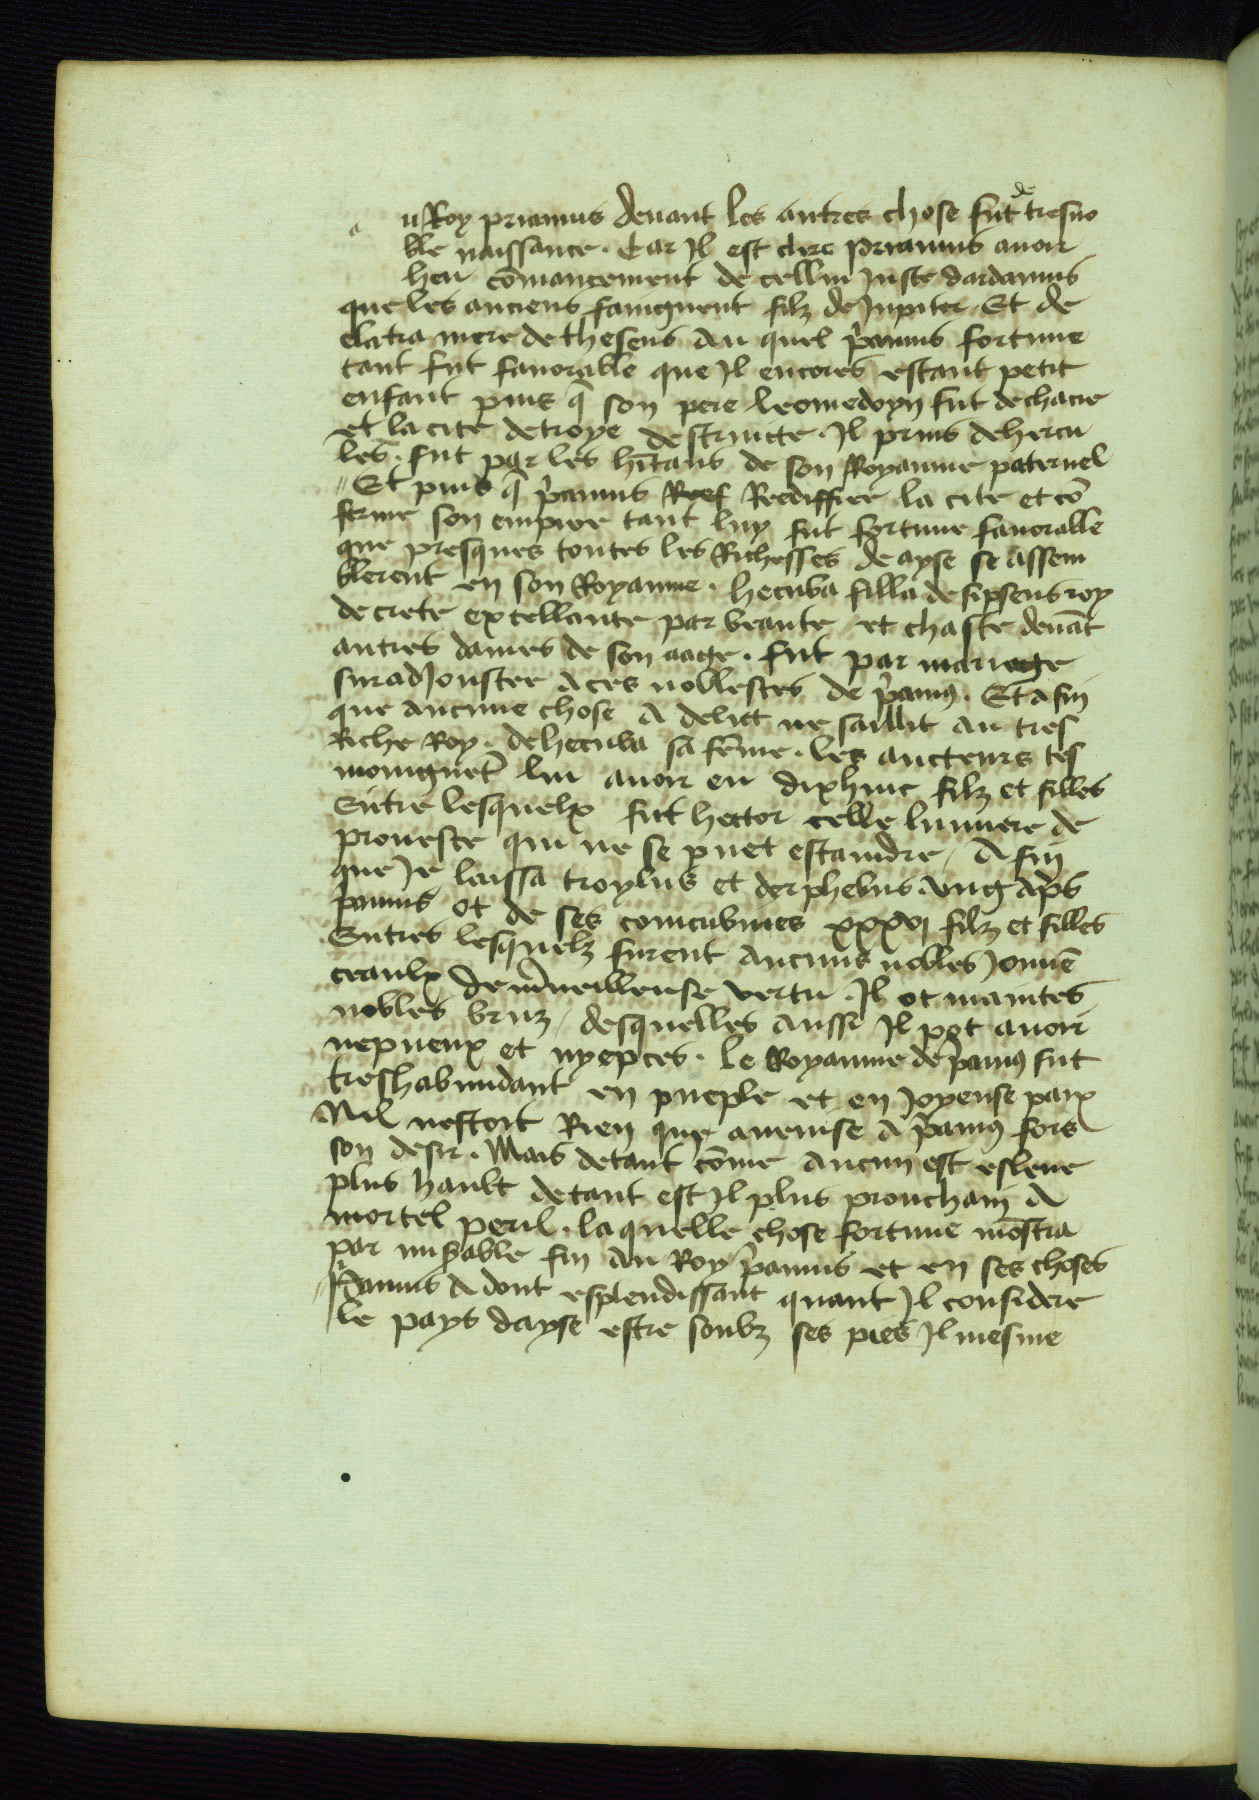 a u Roy priamus deuant les autres chose fut de tresno
ble naissance. Car Il est clerc priamus auoir
heu cōmancement de celluy Juste dardanus
que les anciens faingnent filz de Jupiter. Et de
elatra mere de theseus Au quel p̾amus fortune
tant fut fauorable que Il encores estant petit
enfant puis q̄ son pere leomedoyn fut dechacie
et la cite de troye destruicte. Il prins de hercu
les. fut par les hītans de son Royaume paternel
// Et puis q̄ p̾amus Reef Reediffiee la cite et cō
ferme son empire tant luy fut fortune fauorable
que presques toutes les Richesses de ayse se assem
blerent en son Royaume. hecuba filla de sipseus roy
de crete excellante par beaute et chaste deuāt
autres dames de son aage. fut par mariage
suradJoustee A ces noblesces de p̾amꝰ. Et a fin
que aucune chose A delict ne faillit au tres
Riche Roy. de hecuba sa fēme. les aucteurs tes
moingnēt lui auoir eu dixhuic filz et filles
Entre lesquelx fut hector celle lumiere de
prouesce qui ne se puet estaindre, A fin
que Je laissa troylus et derphebus. vng ap̄s
p̾amus ot de ses concubines xxxvj filz et filles
Entres lesquelz furent Aucuns nobles Jouuē
ceaulx de m̾ueilleuse vertu. Il ot maintes
nobles bruz, desquelles Aussi Il pot auoir
nepueux et nyepces. le Royaume de p̾amꝰ fut
treshabundant en pueple et en Joyeuse paix
Nil nestoit Rien que auenise A p̾amꝰ fors
son desir. Mais de tant cōme Aucun est esleue
plus hault de tant est Il plus prouchain A
mortel peril. la quelle chose fortune mōstra
par miẜable fin Au Roy p̾amus et en ses choses
// P̾amus A dont esplendissant quant Il considere
le pays dayse estre soubz ses pies Il mesme